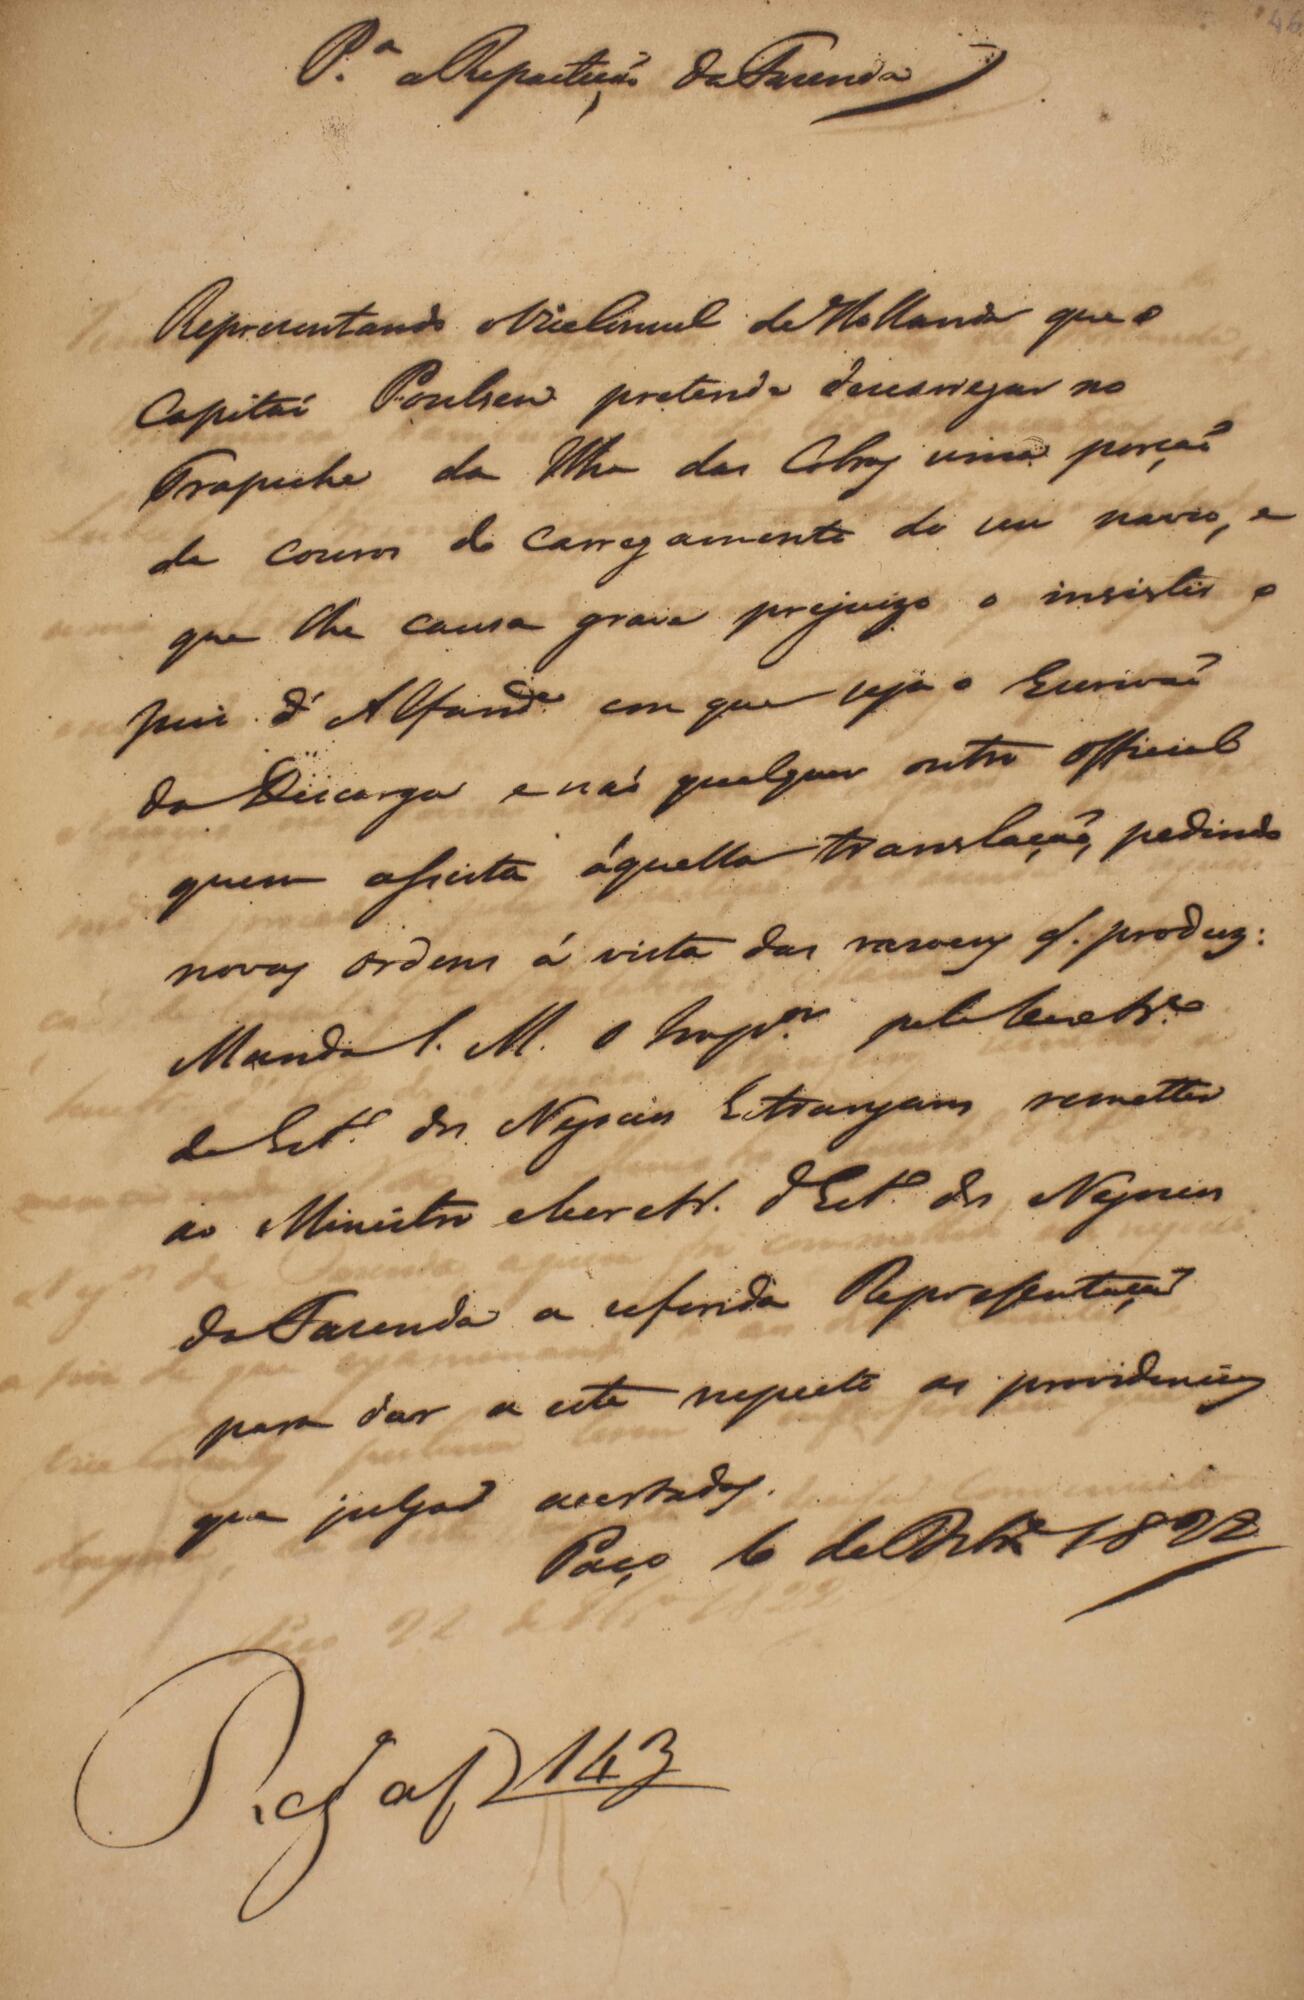 46
P.ª a Repartição da Fazenda
Representando o Vice Consul de Hollanda que o
Capitaõ Poulsen pretende descarregar no
Trapiche da Ilha das Cobras uma porçaõ
de couros do carregamento do seu navio, e
que lhe causa grave prejuizo o insistir o
Juiz d'Alfand.ª em que seja o Escrivaõ
da Discarga e naõ qualquer outro official
quem assista áquella translaçaõ, pedindo
novas ordens á vista das rasoens q. produz:
Manda S. M. O Imp.or pela Secretr.ª
de Est.º dos Negocios Estrangeiros remetter
ao Ministro e Secretr.º d'Est.º dos Negocios
da Fazenda a referida Representaçaõ
para dar a este respeito as providencias
que julgar acertadas.
Paço 6 de Dezbr.º 1822
R.egda af 143